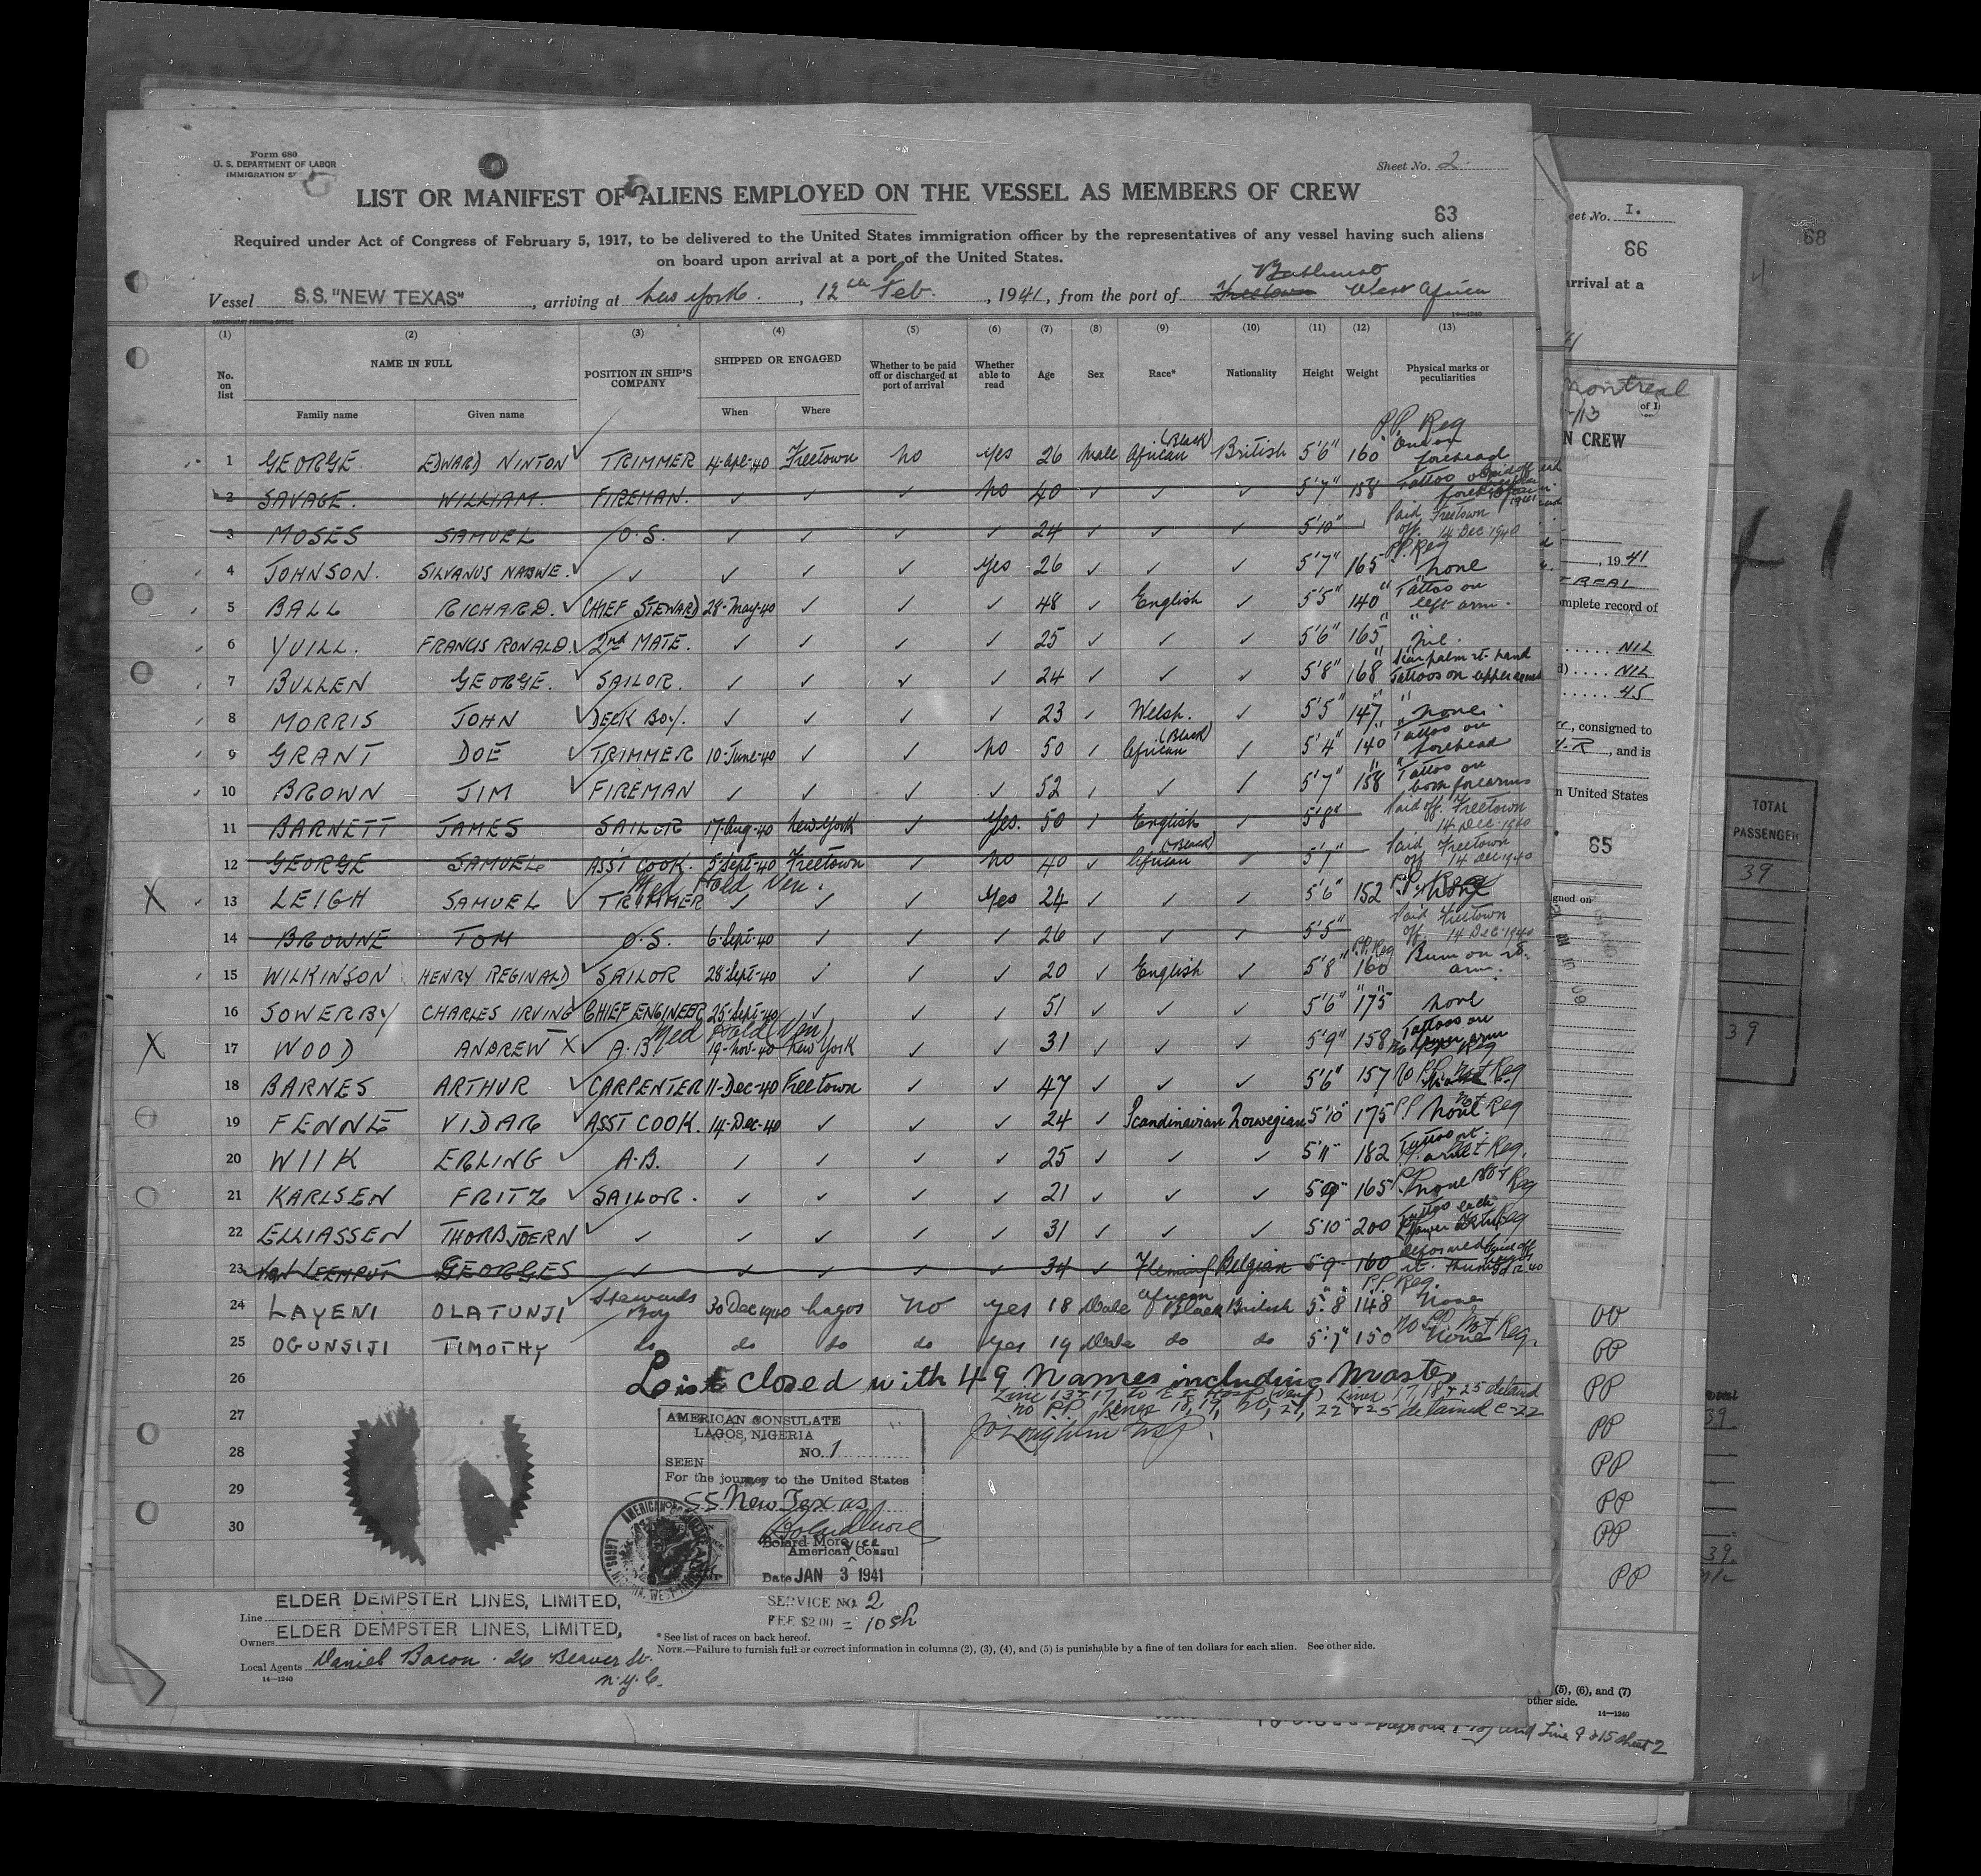 Form 680
U. S. DEPARTMENT OF LABOR
IMMIGRATION
Sheet No. 2
LIST OR MANIFEST OF ALIENS EMPLOYED ON THE VESSEL AS MEMBERS OF CREW
63
Required under Act of Congress of February 5, 1917, to be delivered to the United States immigration officer by the representatives of any vessel having such aliens
on board upon arrival at a port of the United States.
Bathurst
Vessel S.S. "NEW TEXAS", arriving at New York, 12th Feb., 1941, from the port of Freetown West Africa
GOVERNMENT PRINTING OFFICE 14—1240
(1) (2) (3) (4) (5) (6) (7) (8) (9) (10) (11) (12) (13)
No. on list NAME IN FULL POSITION IN SHIP'S COMPANY SHIPPED OR ENGAGED Whether to be paid off or discharged at port of arrival Whether able to read Age Sex Race* Nationality Height Weight Physical marks or peculiarities
Family name Given name When Where
P.P. Reg
1 GEORGE EDWARD NINTON ✓ TRIMMER 14-Apl-40 Freetown No Yes 26 Male African (Black) British 5'6" 160 forehead
2 SAVAGE WILLIAM FIREMAN. ✓ ✓ ✓ No 40 ✓ ✓ ✓ 5'7" 158 Tattoo
3 MOSES SAMUEL O.S. ✓ ✓ ✓ ✓ 24 ✓ ✓ ✓ 5'10" Paid off Freetown 14 Dec 1940
4 JOHNSON. SILVANUS NABWE. ✓ ✓ ✓ ✓ ✓ Yes 26 ✓ ✓ ✓ 5'7" 165 P.P. Reg None
5 BALL RICHARD. ✓ CHIEF STEWARD 28-May-40 ✓ ✓ ✓ 48 ✓ English ✓ 5'5" 140 " Tattoo on left arm.
6 YUILL. FRANCIS RONALD. ✓ 2nd MATE. ✓ ✓ ✓ ✓ 25 ✓ ✓ ✓ 5'6" 165 " nil.
7 BULLEN GEORGE. ✓ SAILOR. ✓ ✓ ✓ ✓ 24 ✓ ✓ ✓ 5'8" 168 " Scar palm rt. hand Tattoos on upper arms
8 MORRIS JOHN ✓ DECK BOY. ✓ ✓ ✓ ✓ 23 ✓ Welsh. ✓ 5'5" 147 " None.
9 GRANT DOE ✓ TRIMMER 10-June-40 ✓ ✓ No 50 ✓ African (Black) ✓ 5'4" 140 " Tattoo on forehead
10 BROWN JIM ✓ FIREMAN ✓ ✓ ✓ ✓ 52 ✓ ✓ ✓ 5'7" 158 " Tattoo on both forearms
11 BARNETT JAMES SAILOR 17-Aug-40 New York ✓ Yes. 50 ✓ English ✓ 5'8" Paid off. Freetown 14 Dec. 1940
12 GEORGE SAMUEL ASST COOK. 5-Sept-40 Freetown ✓ No 40 ✓ African (Black) ✓ 5'7" Paid off Freetown 14 Dec 1940
Med Hold Ven.
X 13 LEIGH SAMUEL ✓ TRIMMER ✓ ✓ ✓ Yes 24 ✓ ✓ ✓ 5'6" 152 P.P. Reg None
14 BROWNE TOM O.S. 6-Sept-40 ✓ ✓ ✓ 26 ✓ ✓ ✓ 5'5" Paid off Freetown 14 Dec 1940
15 WILKINSON HENRY REGINALD ✓ SAILOR 28-Sept-40 ✓ ✓ ✓ 20 ✓ English ✓ 5'8" 160 P.P. Reg Burn on rt. arm.
16 SOWERBY CHARLES IRVING ✓ CHIEF ENGINEER 25-Sept-40 ✓ ✓ ✓ 51 ✓ ✓ ✓ 5'6" 175 None
Med Hold (Ven)
X 17 WOOD ANDREW X ✓ A.B. 19-Nov-40 New York ✓ ✓ 31 ✓ ✓ ✓ 5'9" 158 Tattoos on lower arm No PP Reg
18 BARNES ARTHUR ✓ CARPENTER 11-Dec-40 Freetown ✓ ✓ 47 ✓ ✓ ✓ 5'6" 157 No PP Not Reg
19 FENNE VIDAR ✓ ASST COOK. 14-Dec-40 ✓ ✓ ✓ 24 ✓ Scandinavian Norwegian 5'10" 175 PP None Not Reg
20 WIIK ERLING ✓ A.B. ✓ ✓ ✓ ✓ 25 ✓ ✓ ✓ 5'11" 182 Tattoo rt. arm Not Reg.
21 KARLSEN FRITZ ✓ SAILOR. ✓ ✓ ✓ ✓ 21 ✓ ✓ ✓ 5'9" 165 PP None Not Reg
22 ELLIASSEN THORBJOERN ✓ ✓ ✓ ✓ ✓ ✓ 31 ✓ ✓ ✓ 5'10" 200 Tattoo each lower arm Not Reg
23 VAN LEEMPUT GEORGES ✓ ✓ ✓ ✓ ✓ 34 ✓ Fleming Belgian 5'9" 160 rt. thumb
24 LAYENI OLATUNJI ✓ Stewards Boy 30 Dec 1940 Lagos No Yes 18 Male African Black British 5'8" 148 P.P. Reg. None
25 OGUNSIJI TIMOTHY do do do do Yes 19 Male do do 5'7" 150 No PP. Not Reg. None
26 List closed with 49 Names including Master
Line 13+17 to E I Hosp (Ven) Lines 17, 18 + 25 detained
27 no PP Lines 18, 19, 20, 21, 22 + 25 detained C-22
28
29
30
AMERICAN CONSULATE
LAGOS, NIGERIA
NO. 1
SEEN
For the journey to the United States
SS New Texas
Bolard More
Vice
American Consul
Date JAN 3 1941
SERVICE NO. 2
FEE $2.00 = 10 sh
Line ELDER DEMPSTER LINES, LIMITED,
Owners ELDER DEMPSTER LINES, LIMITED,
Local Agents Daniel Bacon. 26 Beaver St.
N.Y.C.
14—1240
* See list of races on back hereof.
NOTE.—Failure to furnish full or correct information in columns (2), (3), (4), and (5) is punishable by a fine of ten dollars for each alien. See other side.
eet No. I.
66
68
rrival at a
Montreal
of I
N CREW
, 1941
REAL
mplete record of
NIL
NIL
45
, consigned to
, and is
n United States
65
gned on
TOTAL
PASSENGER
39
39
PP
PP
PP
PP
PP
PP
PP
39.
39.
(5), (6), and (7)
other side.
14—1240
and Line 9 & 15 sheet 2